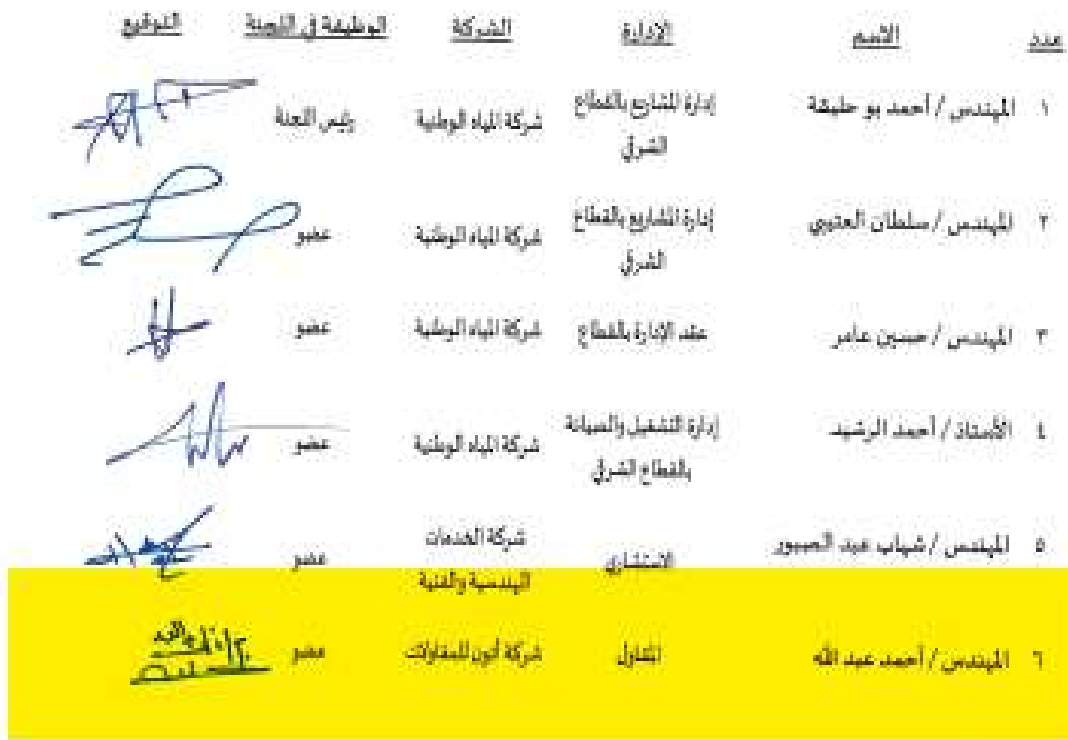 عدد الاسم الإدارة الشركة الوظيفة في اللجنة التوقيع
١ المهندس / أحمد بو حليقة إدارة المشاريع بالقطاع الشرقي شركة المياه الوطنية رئيس اللجنة
٢ المهندس / سلطان العتيبي إدارة المشاريع بالقطاع الشرقي شركة المياه الوطنية عضو
٣ المهندس / حسين عامر عقد الإدارة بالقطاع شركة المياه الوطنية عضو
٤ الأستاذ / أحمد الرشيد إدارة التشغيل والصيانة بالقطاع الشرقي شركة المياه الوطنية عضو
٥ المهندس / شهاب عبد الصبور الاستشاري شركة الخدمات الهندسية والفنية عضو
٦ المهندس / أحمد عبد الله المقاول شركة أنون للمقاولات عضو